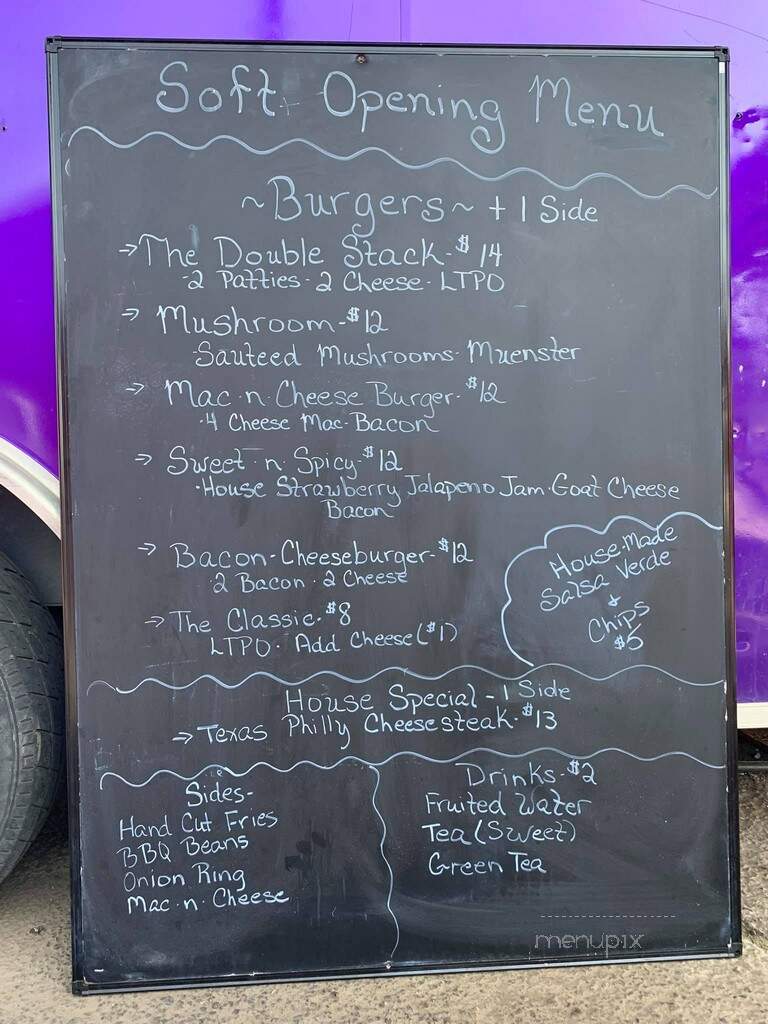 Soft Opening Menu
~Burgers~ + 1 Side
→The Double Stack-$14
·2 Patties· 2 Cheese· LTPO
→ Mushroom-$12
·Sauteed Mushrooms· Muenster
→ Mac·n·Cheese Burger·$12
·4 Cheese Mac·Bacon
→ Sweet·n·Spicy·$12
·House Strawberry Jalapeno Jam·Goat Cheese
Bacon
→ Bacon-Cheeseburger-$12
·2 Bacon·2 Cheese
→ The Classic·$8
LTPO· Add Cheese($1)
House·Made
Salsa Verde
+
Chips
$5
House Special - 1 Side
→ Texas Philly Cheesesteak·$13
Sides-
Hand Cut Fries
BBQ Beans
Onion Ring
Mac·n·Cheese
Drinks·$2
Fruited Water
Tea (Sweet)
Green Tea
menupix